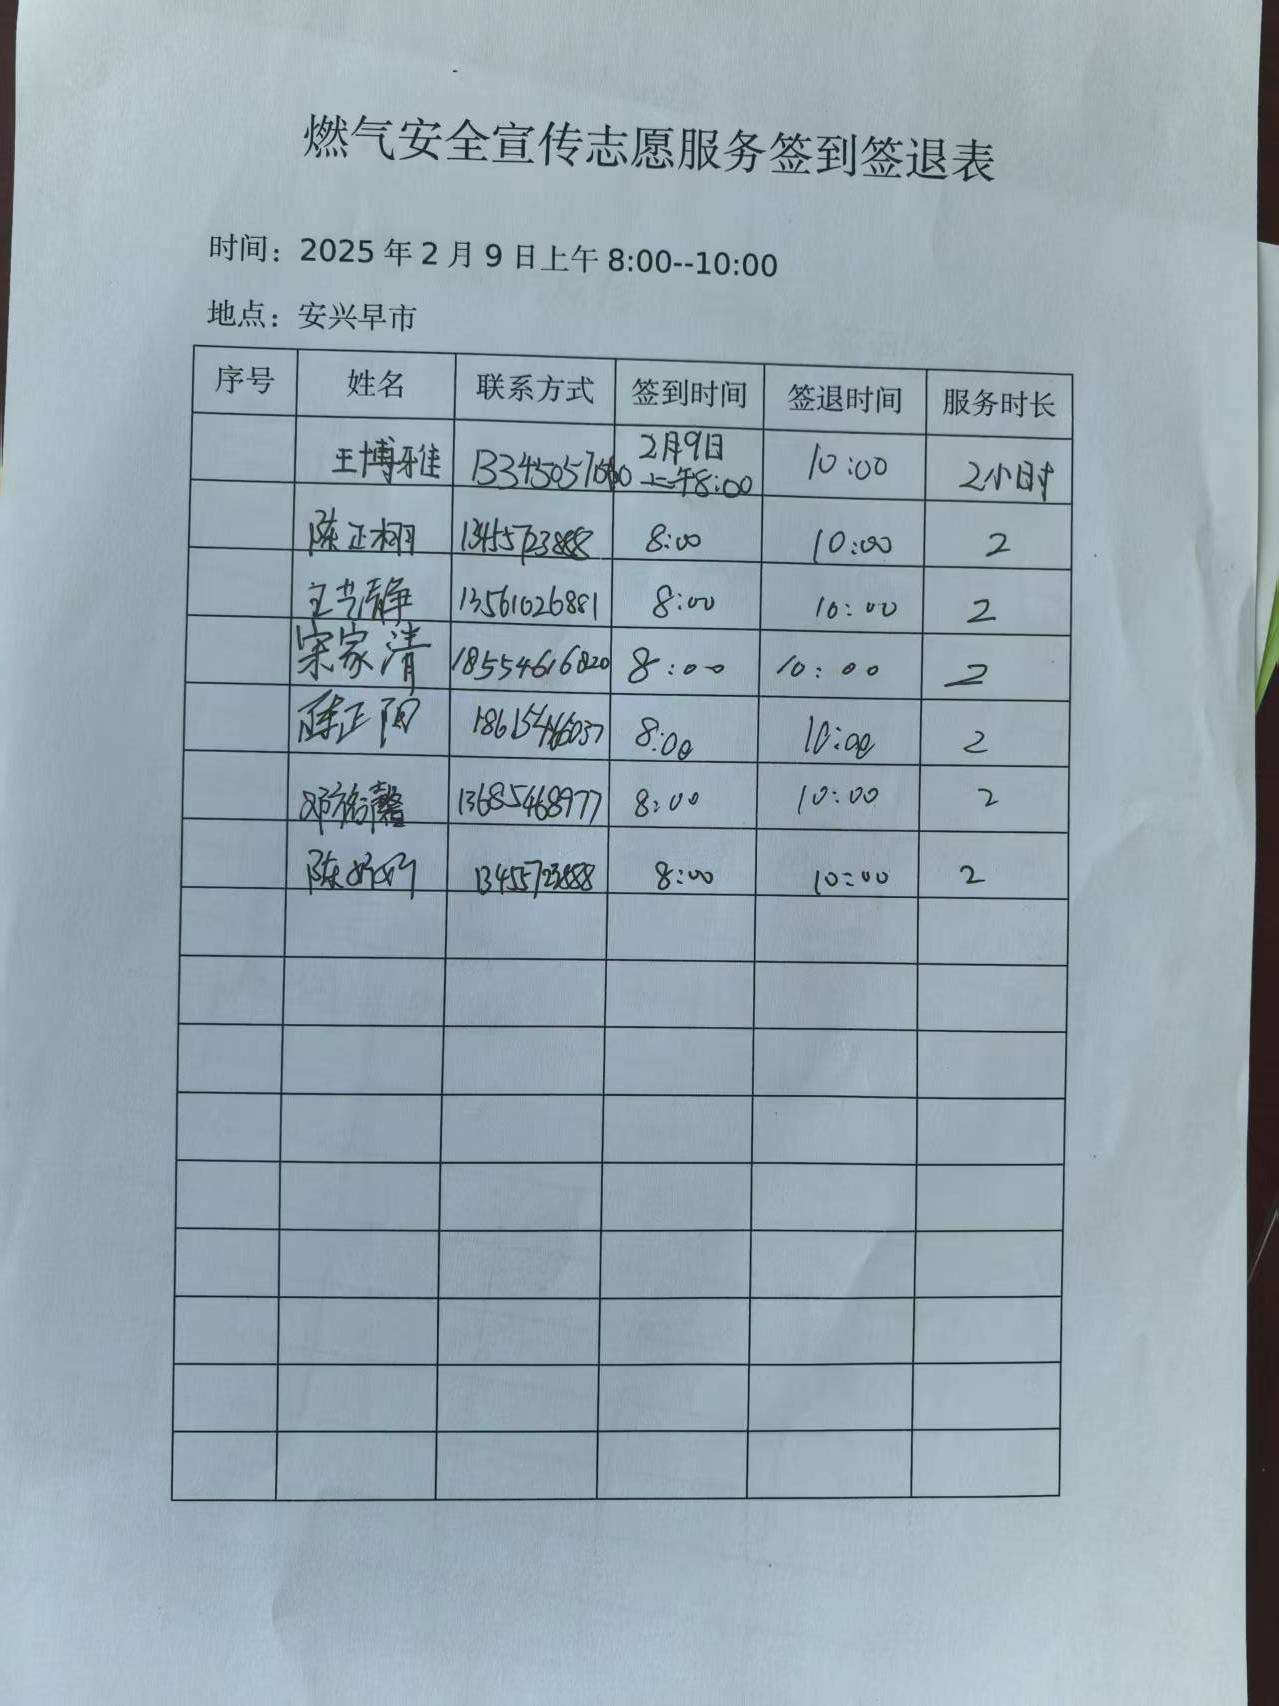 燃气安全宣传志愿服务签到签退表
时间：2025年2月9日上午8:00--10:00
地点：安兴早市
序号 姓名 联系方式 签到时间 签退时间 服务时长
王博雅 2月9日上午8:00 10:00 2小时
陈正栩 13455723888 8:00 10:00 2
王艺静 13561026881 8:00 10:00 2
宋家清 18554616820 8:00 10:00 2
陈正阳 18615466037 8:00 10:00 2
邓 馨 13685468977 8:00 10:00 2
陈 13455723888 8:00 10:00 2